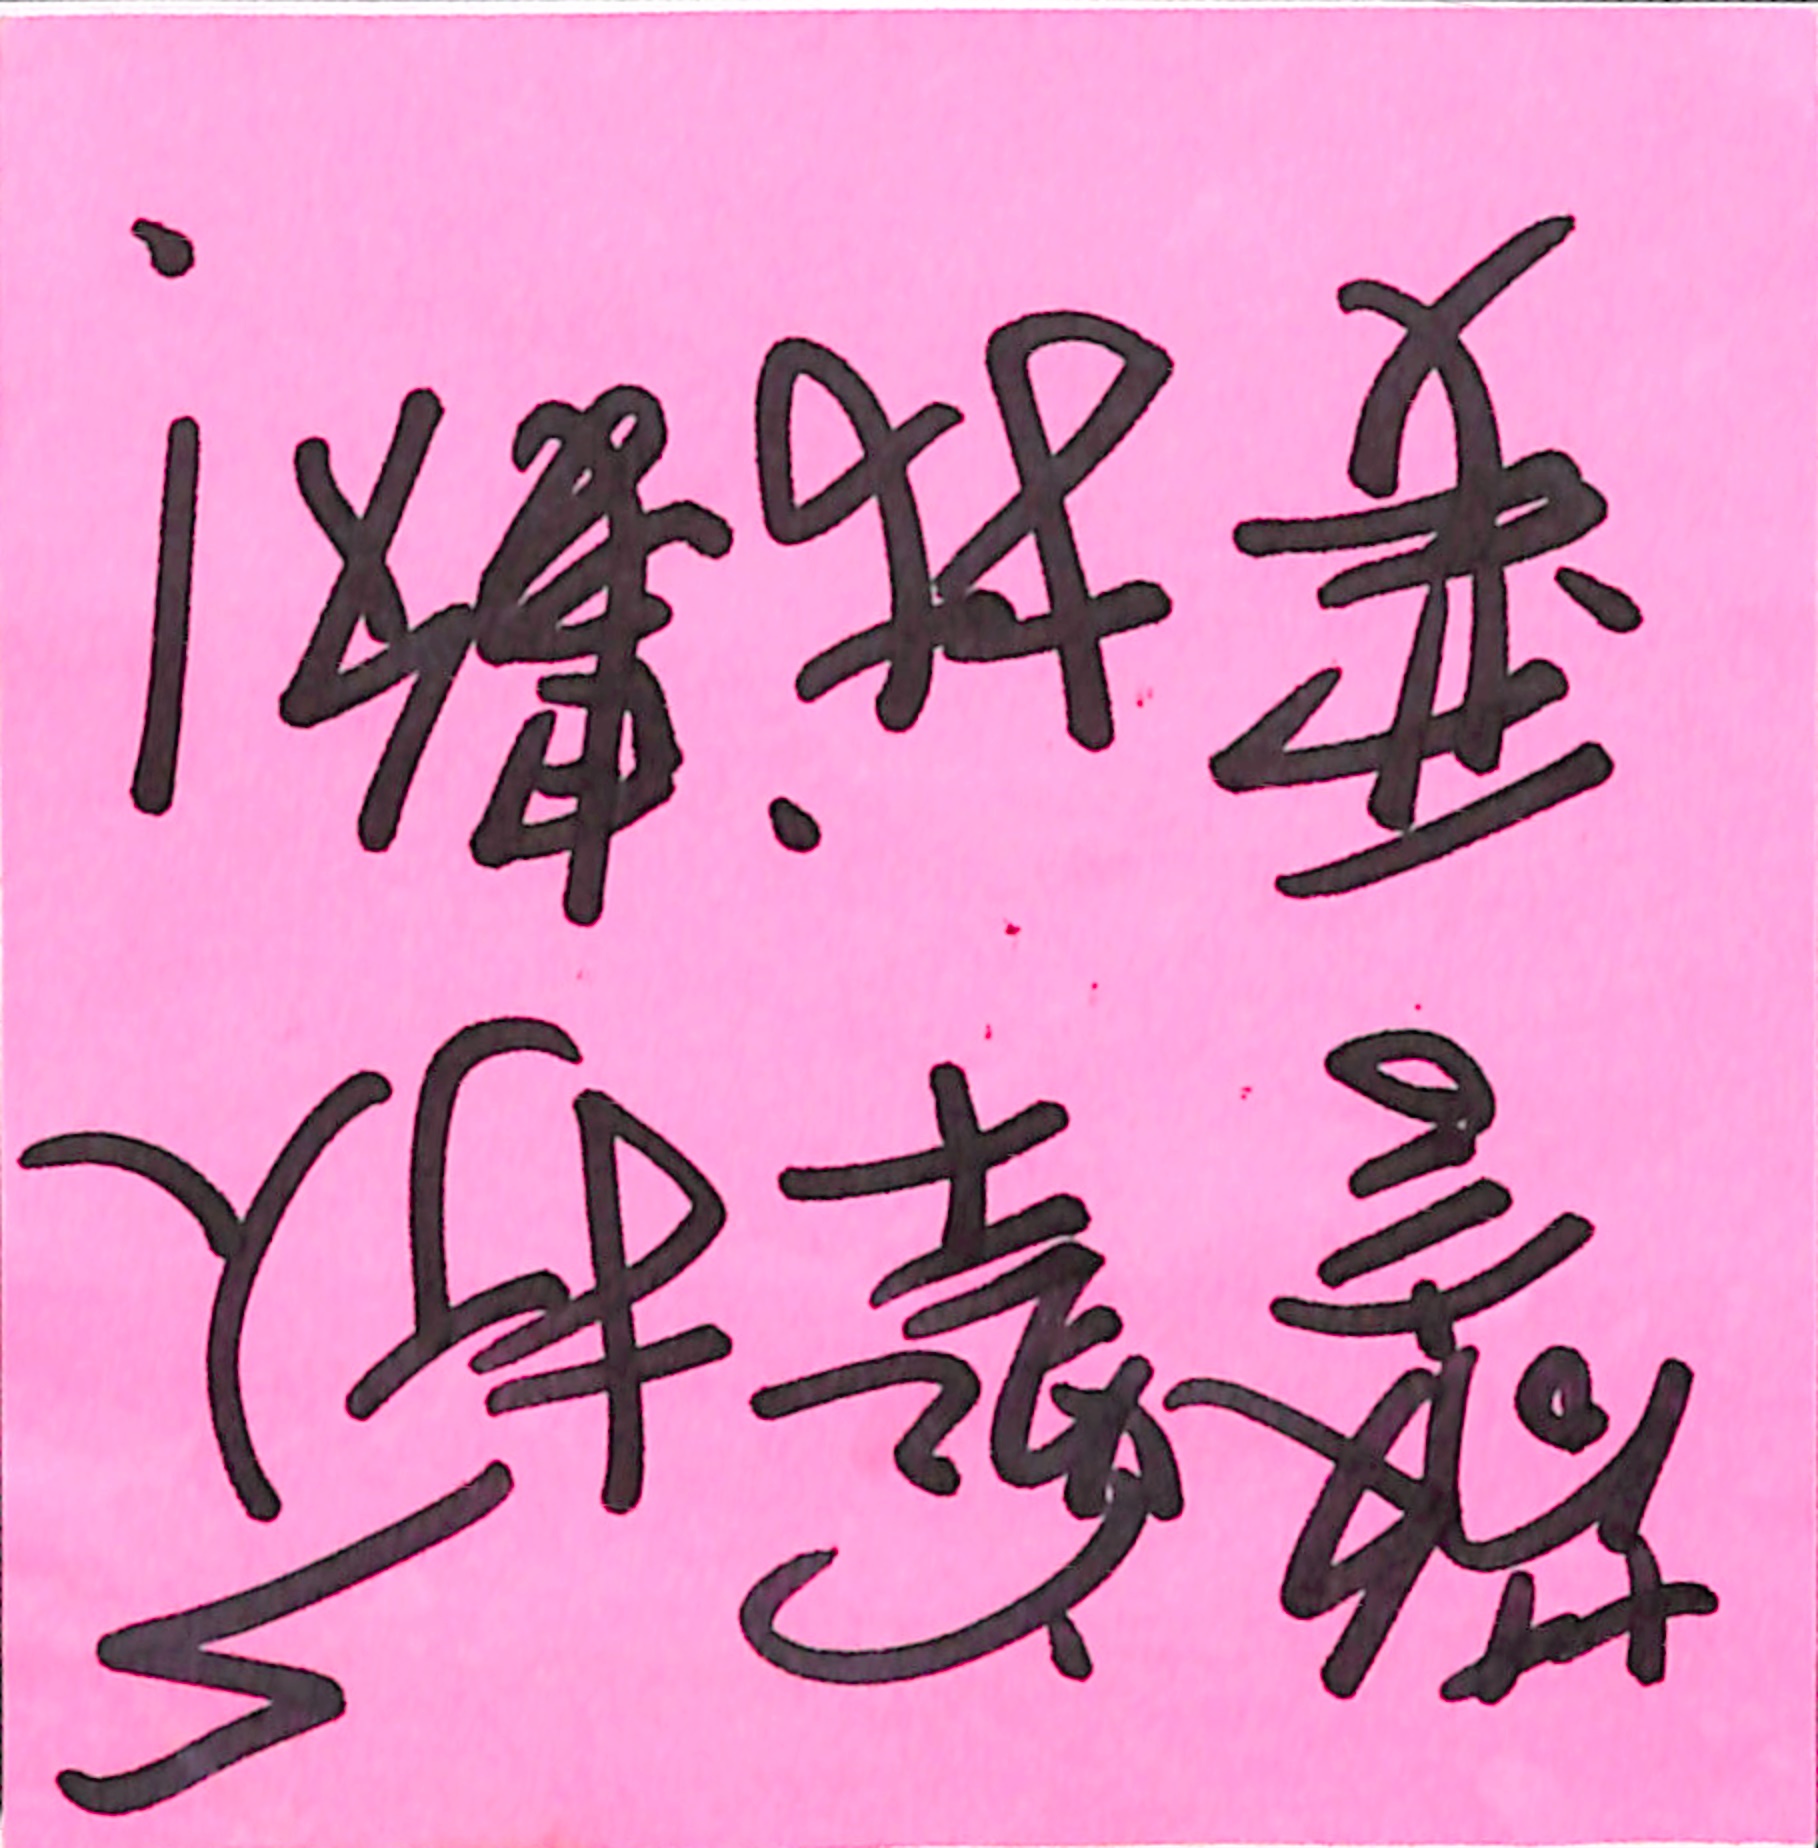 警察打人
要找數！